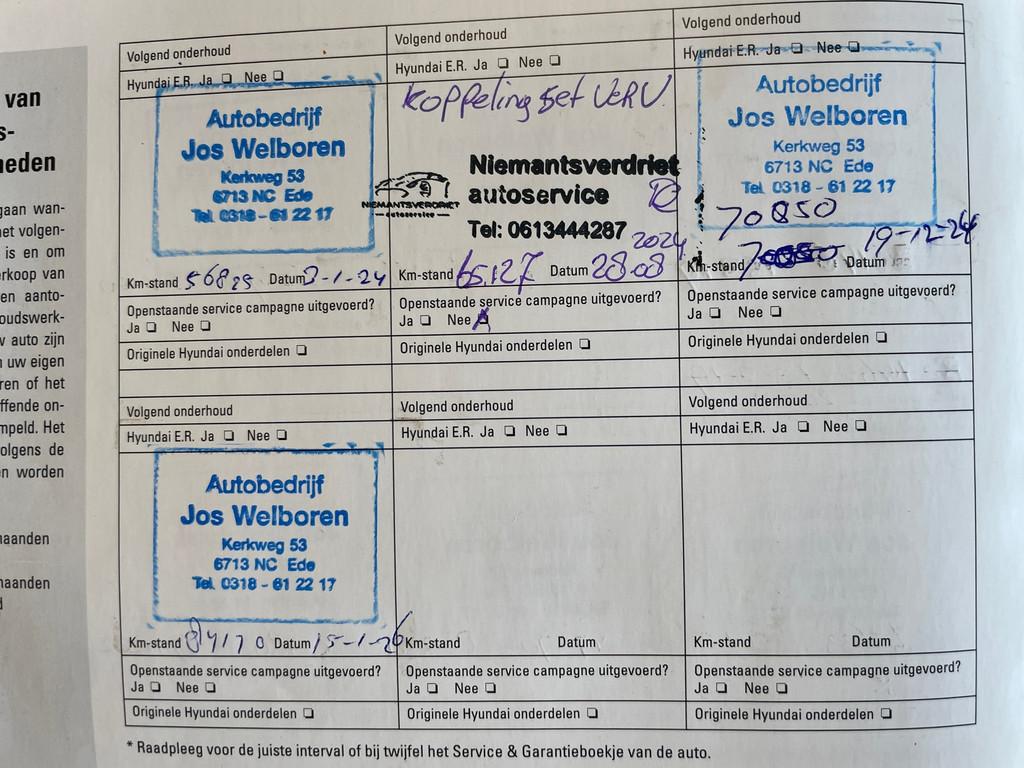 van
s-
heden
gaan wan-
net volgen-
is en om
erkoop van
en aanto-
oudswerk-
w auto zijn
n uw eigen
ren of het
ffende on-
mpeld. Het
olgens de
n worden
naanden
naanden
Volgend onderhoud
Hyundai E.R. Ja ❏ Nee ❏
Autobedrijf
Jos Welboren
Kerkweg 53
6713 NC Ede
Tel. 0318 - 61 22 17
Km-stand 56829 Datum 3-1-24
Openstaande service campagne uitgevoerd?
Ja ❏ Nee ❏
Originele Hyundai onderdelen ❏
Volgend onderhoud
Hyundai E.R. Ja ❏ Nee ❏
Koppeling set VERV.
Niemantsverdriet
autoservice
NIEMANTSVERDRIET
autoservice
Tel: 0613444287
2024
Km-stand 65.127 Datum 28-08
Openstaande service campagne uitgevoerd?
Ja ❏ Nee ❏
Originele Hyundai onderdelen ❏
Volgend onderhoud
Hyundai E.R. Ja ❏ Nee ❏
Autobedrijf
Jos Welboren
Kerkweg 53
6713 NC Ede
Tel. 0318 - 61 22 17
70850
19-12-24
Km-stand Datum
Openstaande service campagne uitgevoerd?
Ja ❏ Nee ❏
Originele Hyundai onderdelen ❏
Volgend onderhoud
Hyundai E.R. Ja ❏ Nee ❏
Autobedrijf
Jos Welboren
Kerkweg 53
6713 NC Ede
Tel. 0318 - 61 22 17
Km-stand 84170 Datum 15-1-26
Openstaande service campagne uitgevoerd?
Ja ❏ Nee ❏
Originele Hyundai onderdelen ❏
Volgend onderhoud
Hyundai E.R. Ja ❏ Nee ❏
Km-stand Datum
Openstaande service campagne uitgevoerd?
Ja ❏ Nee ❏
Originele Hyundai onderdelen ❏
Volgend onderhoud
Hyundai E.R. Ja ❏ Nee ❏
Km-stand Datum
Openstaande service campagne uitgevoerd?
Ja ❏ Nee ❏
Originele Hyundai onderdelen ❏
* Raadpleeg voor de juiste interval of bij twijfel het Service & Garantieboekje van de auto.